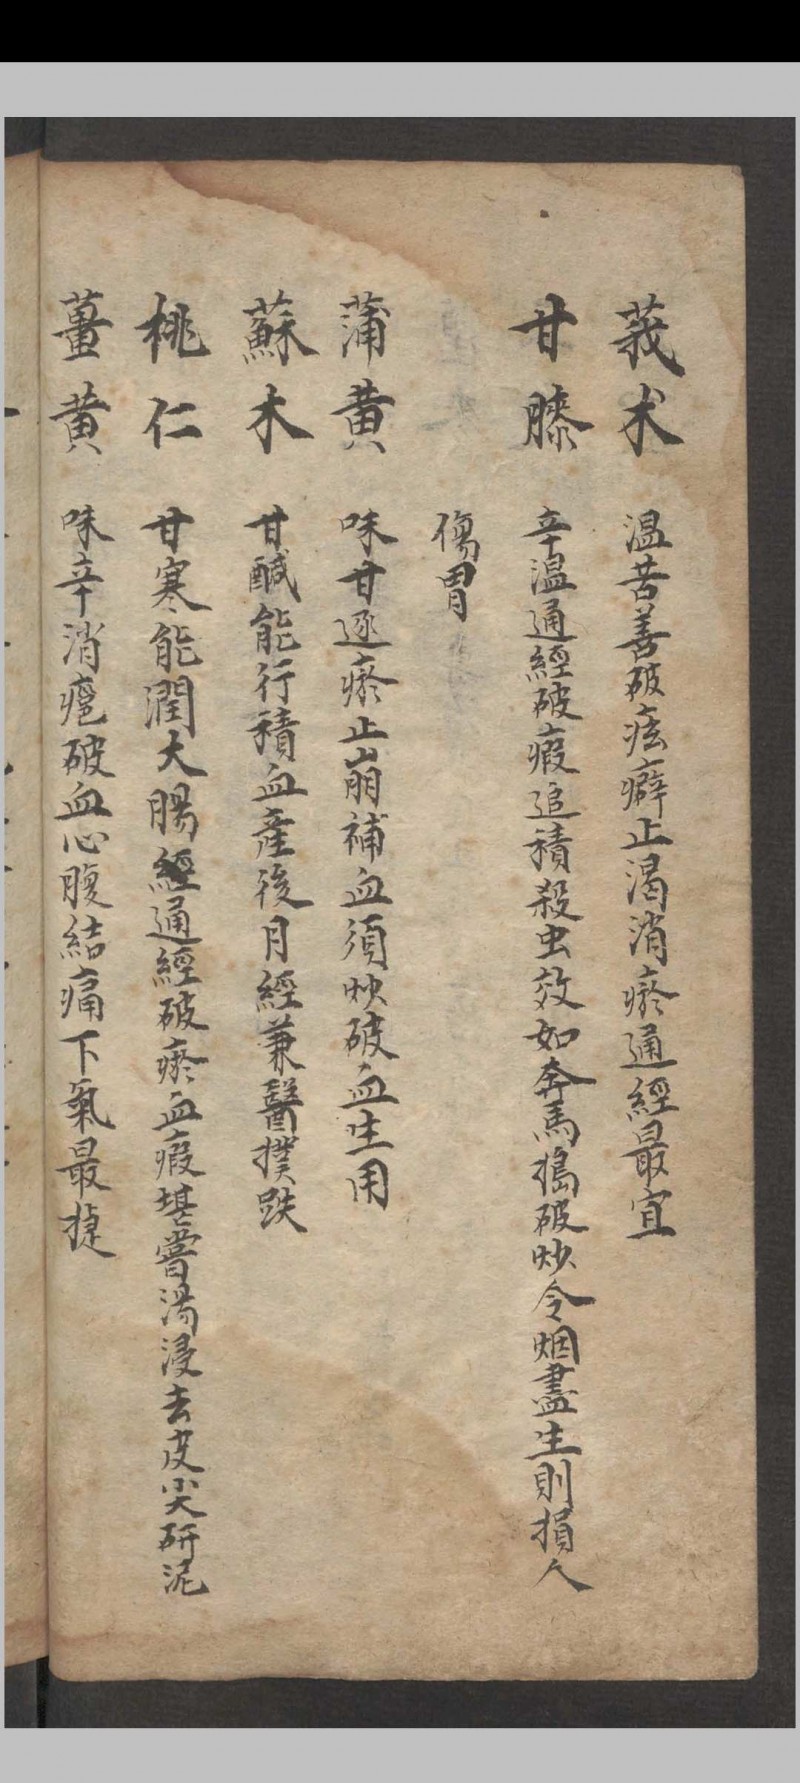 莪朮 温苦善破痃癖止渴消瘀通經最宜
甘膝 辛温通經破瘕追積殺虫效如奔馬搗破炒令烟盡生則損人
傷胃
蒲黄 味甘逐瘀止崩補血須炒破血生用
蘇木 甘醎能行積血産後月經兼醫撲跌
桃仁 甘寒能潤大腸經通經破瘀血瘕堪嘗湯浸去皮尖研泥
薑黄 味辛消癰破血心腹結痛下氣最捷